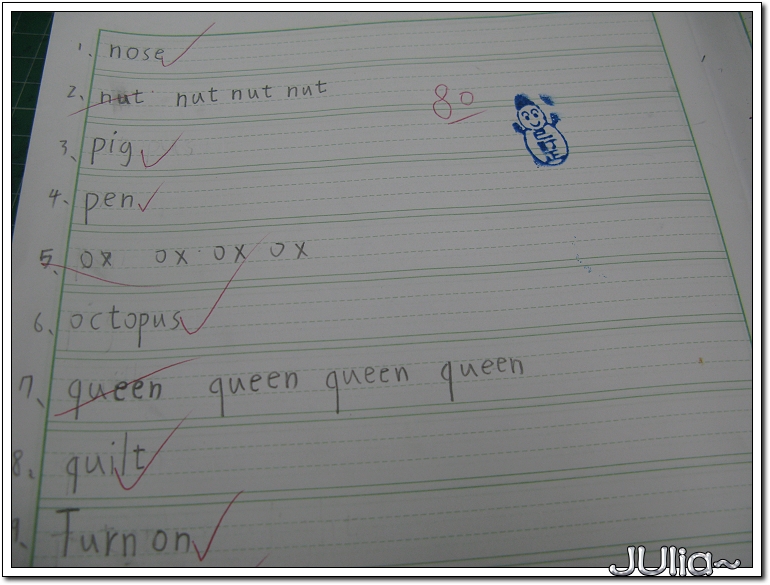 1. nose
2、 nut nut nut nut
80
3、 pig
4、 pen
5、 ox ox ox ox
6、 octopus
7、 queen queen queen queen
8、 quilt
9、 Turn on
JUlia~